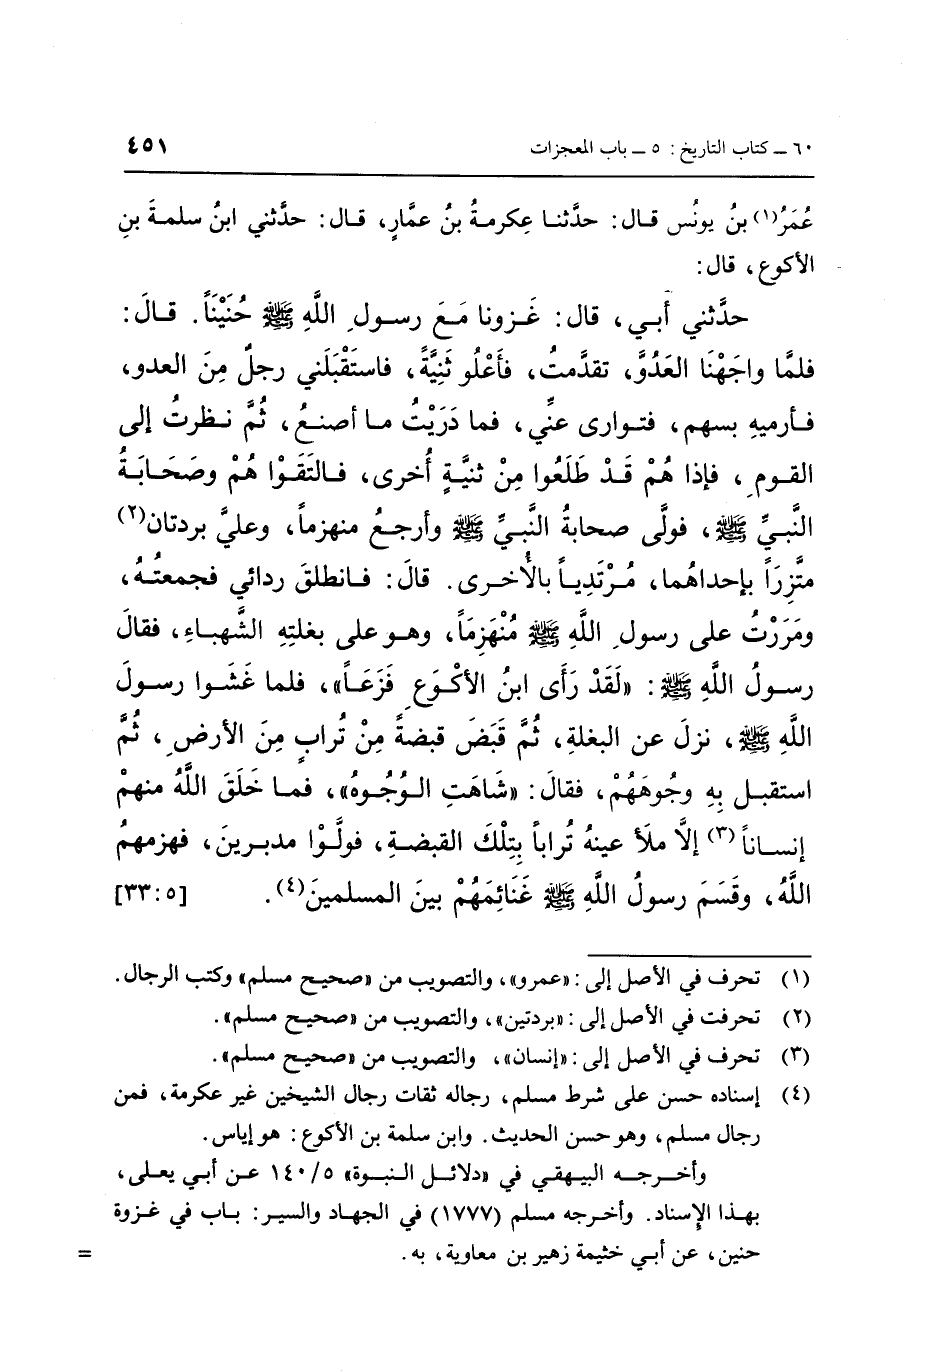 ٦٠ ـ كتاب التاريخ : ٥ ـ باب المعجزات ٤٥١
عُمَرُ(١) بنُ يونُس قال : حدَّثنا عِكرمةُ بنُ عمَّارٍ، قال : حدَّثني ابنُ سلمةَ بنِ
الأكوع ، قال :
حدَّثني أبي ، قال : غَزونا مَعَ رسولِ اللَّهِ ﷺ حُنَيْنَاً . قالَ :
فلمَّا واجَهْنَا العَدُوَّ، تقدَّمتُ، فأَعْلُو ثَنِيَّةً، فاستَقْبَلَني رجلٌ مِنَ العدو،
فأرميهِ بسهم، فتوارى عنِّي ، فما دَرَيْتُ ما أصنعُ ، ثُمَّ نظرتُ إلى
القومِ ، فإذا هُمْ قَدْ طَلَعُوا مِنْ ثنيَّةٍ أُخرى، فالتَقَوْا هُمْ وصَحَابَةُ
النَّبيِّ ﷺ ، فولَّى صحابةُ النَّبيِّ ﷺ وأرجعُ منهزماً، وعليَّ بردتان(٢)
متَّزِرَاً بإحداهُما، مُرْتَدِياً بالأُخرى . قالَ : فانطلقَ ردائي فجمعتُهُ،
ومَرَرْتُ على رسولِ اللَّهِ ﷺ مُنْهَزِمَاً، وهو على بغلتِهِ الشَّهباءِ، فقالَ
رسولُ اللَّهِ ﷺ : «لَقَدْ رَأَى ابنُ الأكْوَعِ فَزَعَاً»، فلما غَشَوا رسولَ
اللَّهِ ﷺ ، نزلَ عن البغلةِ، ثُمَّ قَبَضَ قبضةً مِنْ تُرابٍ مِنَ الأرضِ ، ثُمَّ
استقبل بِهِ وجُوهَهُمْ، فقالَ : «شَاهَتِ الوُجُوهُ»، فما خَلَقَ اللَّهُ منهمْ
إنساناً(٣) إلَّا ملأَ عينهُ تُراباً بِتِلْكَ القبضةِ، فولَّوْا مدبرينَ، فهزمهمُ
اللَّهُ، وقَسَمَ رسولُ اللَّهِ ﷺ غَنَائِمَهُمْ بينَ المسلمينَ(٤). [٣٣:٥]
(١) تحرف في الأصل إلى : «عمرو»، والتصويب من «صحيح مسلم» وكتب الرجال .
(٢) تحرفت في الأصل إلى : «بردتين»، والتصويب من «صحيح مسلم» .
(٣) تحرف في الأصل إلى : «إنسان»، والتصويب من «صحيح مسلم» .
(٤) إسناده حسن على شرط مسلم، رجاله ثقات رجال الشيخين غير عكرمة، فمن
رجال مسلم، وهو حسن الحديث . وابن سلمة بن الأكوع : هو إياس .
وأخرجه البيهقي في «دلائل النبوة» ١٤٠/٥ عن أبي يعلى،
بهذا الإسناد . وأخرجه مسلم (١٧٧٧) في الجهاد والسير : باب في غزوة
حنين، عن أبي خثيمة زهير بن معاوية، به . =